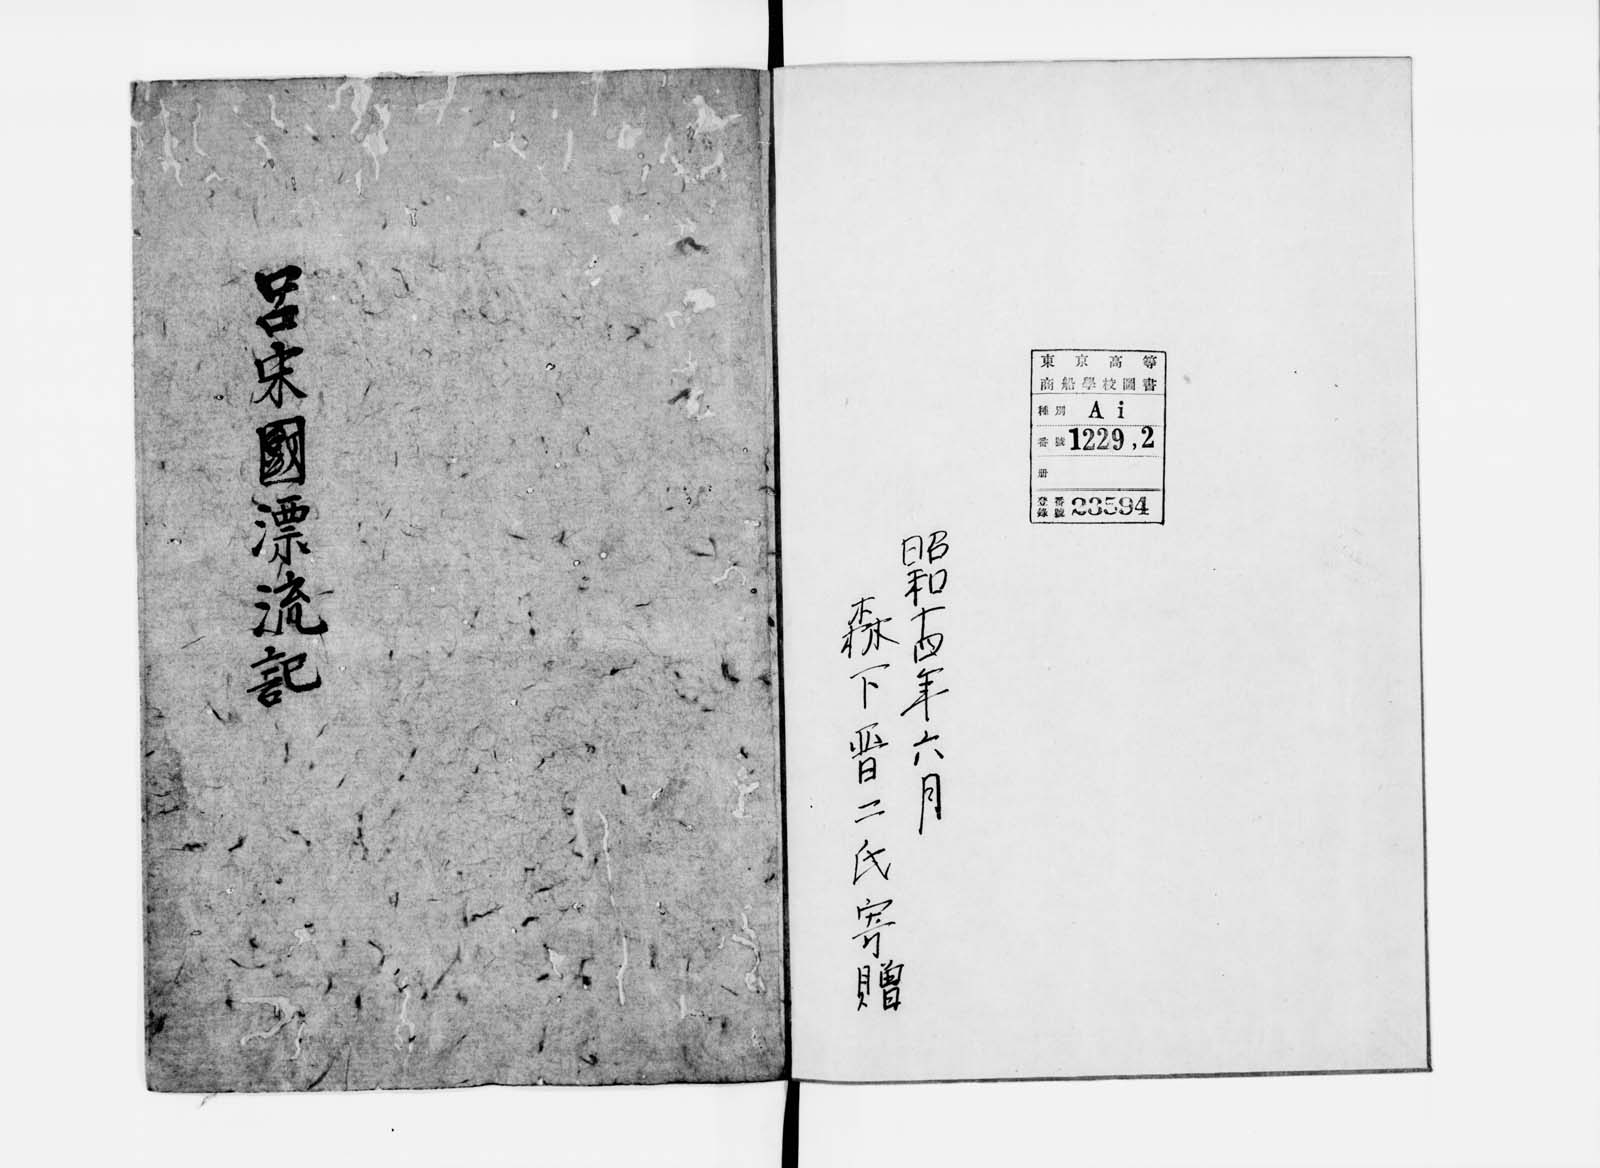 東京高等
商船學校圖書
種別 Ai
番號 1229,2
册
登錄番號 23594
昭和十四年六月
森下晋二氏寄贈
呂宋國漂流記